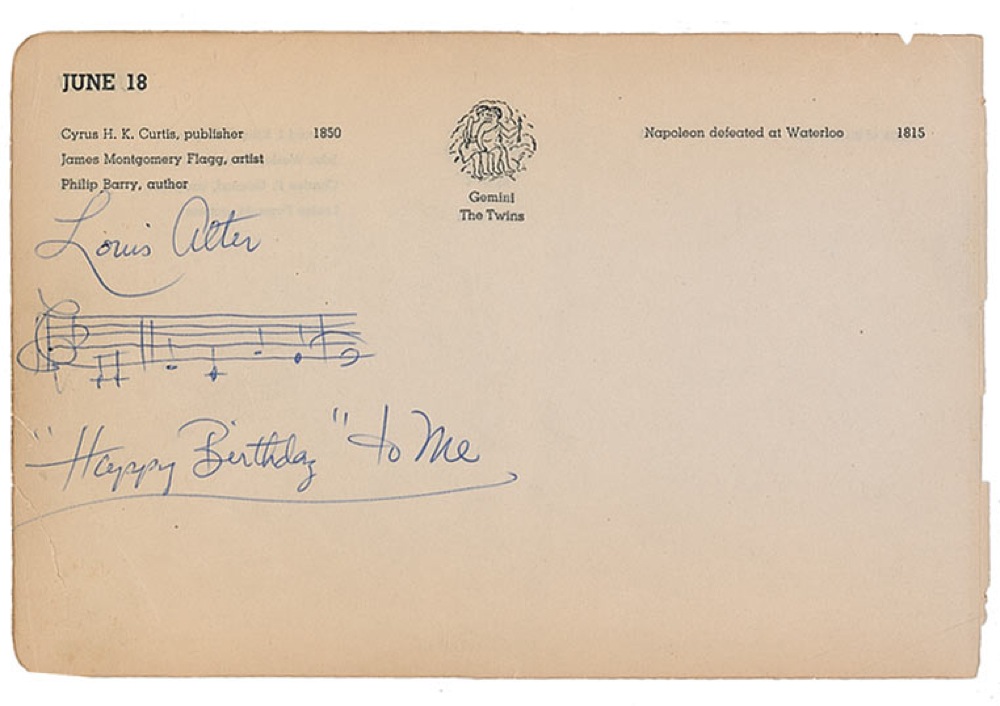 JUNE 18
Cyrus H. K. Curtis, publisher 1850
James Montgomery Flagg, artist
Philip Barry, author
Gemini
The Twins
Napoleon defeated at Waterloo 1815
Louis Alter
"Happy Birthday" to Me